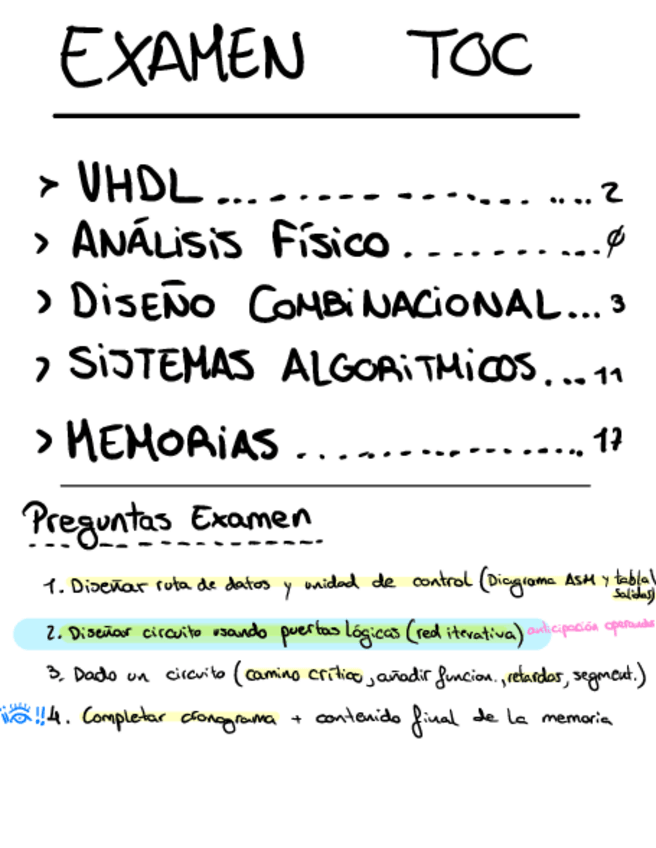 EXAMEN TOC
> VHDL ................... 2
> ANÁLISIS FÍSICO ........... ∅
> DISEÑO COMBINACIONAL... 3
> SISTEMAS ALGORITMICOS... 11
> MEMORIAS ................... 17
Preguntas Examen
1. Diseñar ruta de datos y unidad de control (Diagrama ASM y tabla
salidas)
2. Diseñar circuito usando puertas lógicas (red iterativa) anticipación operandos
3. Dado un circuito (camino crítico, añadir funcion., retardos, segment.)
!! 4. Completar cronograma + contenido final de la memoria